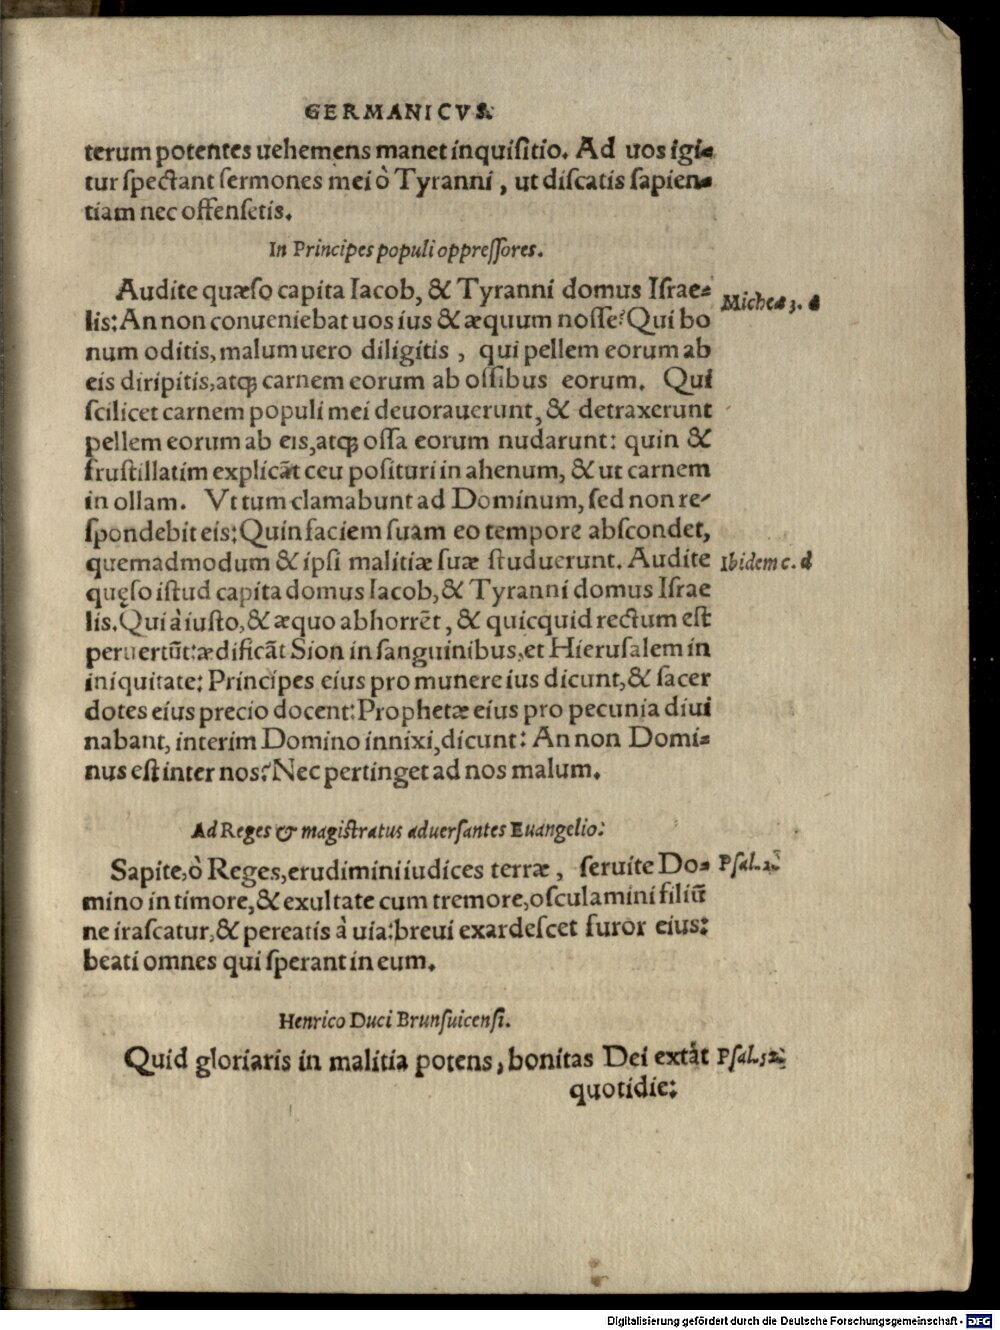 GERMANICVS.
terum potentes uehemens manet inquisitio. Ad uos igi-
tur spectant sermones mei ò Tyranni, ut discatis sapien-
tiam nec offensetis.
In Principes populi oppreſſores.
Audite quæso capita Iacob, & Tyranni domus Israe-
lis: An non conueniebat uos ius & æquum nosse? Qui bo
num oditis, malum uero diligitis, qui pellem eorum ab
eis diripitis, atq; carnem eorum ab ossibus eorum. Qui
scilicet carnem populi mei deuorauerunt, & detraxerunt
pellem eorum ab eis, atq; ossa eorum nudarunt: quin &
frustillatim explicãt ceu posituri in ahenum, & ut carnem
in ollam. Vt tum clamabunt ad Dominum, sed non re-
spondebit eis: Quin faciem suam eo tempore abscondet,
quemadmodum & ipsi malitiæ suæ studuerunt. Audite
quęso istud capita domus Iacob, & Tyranni domus Israe
lis. Qui à iusto, & æquo abhorrẽt, & quicquid rectum est
peruertũt: ædificãt Sion in sanguinibus, et Hierusalem in
iniquitate: Principes eius pro munere ius dicunt, & sacer
dotes eius precio docent: Prophetæ eius pro pecunia diui
nabant, interim Domino innixi, dicunt: An non Domi-
nus est inter nos? Nec pertinget ad nos malum.
Miche. 3. a
Ibidem c. d
Ad Reges & magistratus aduersantes Euangelio:
Sapite, ò Reges, erudimini iudices terræ, seruite Do-
mino in timore, & exultate cum tremore, osculamini filiũ
ne irascatur, & pereatis à uia: breui exardescet furor eius:
beati omnes qui sperant in eum.
Psal. 2.
Henrico Duci Brunsuicensi.
Quid gloriaris in malitia potens, bonitas Dei extãt
quotidie:
Psal. 52.
Digitalisierung gefördert durch die Deutsche Forschungsgemeinschaft - DFG